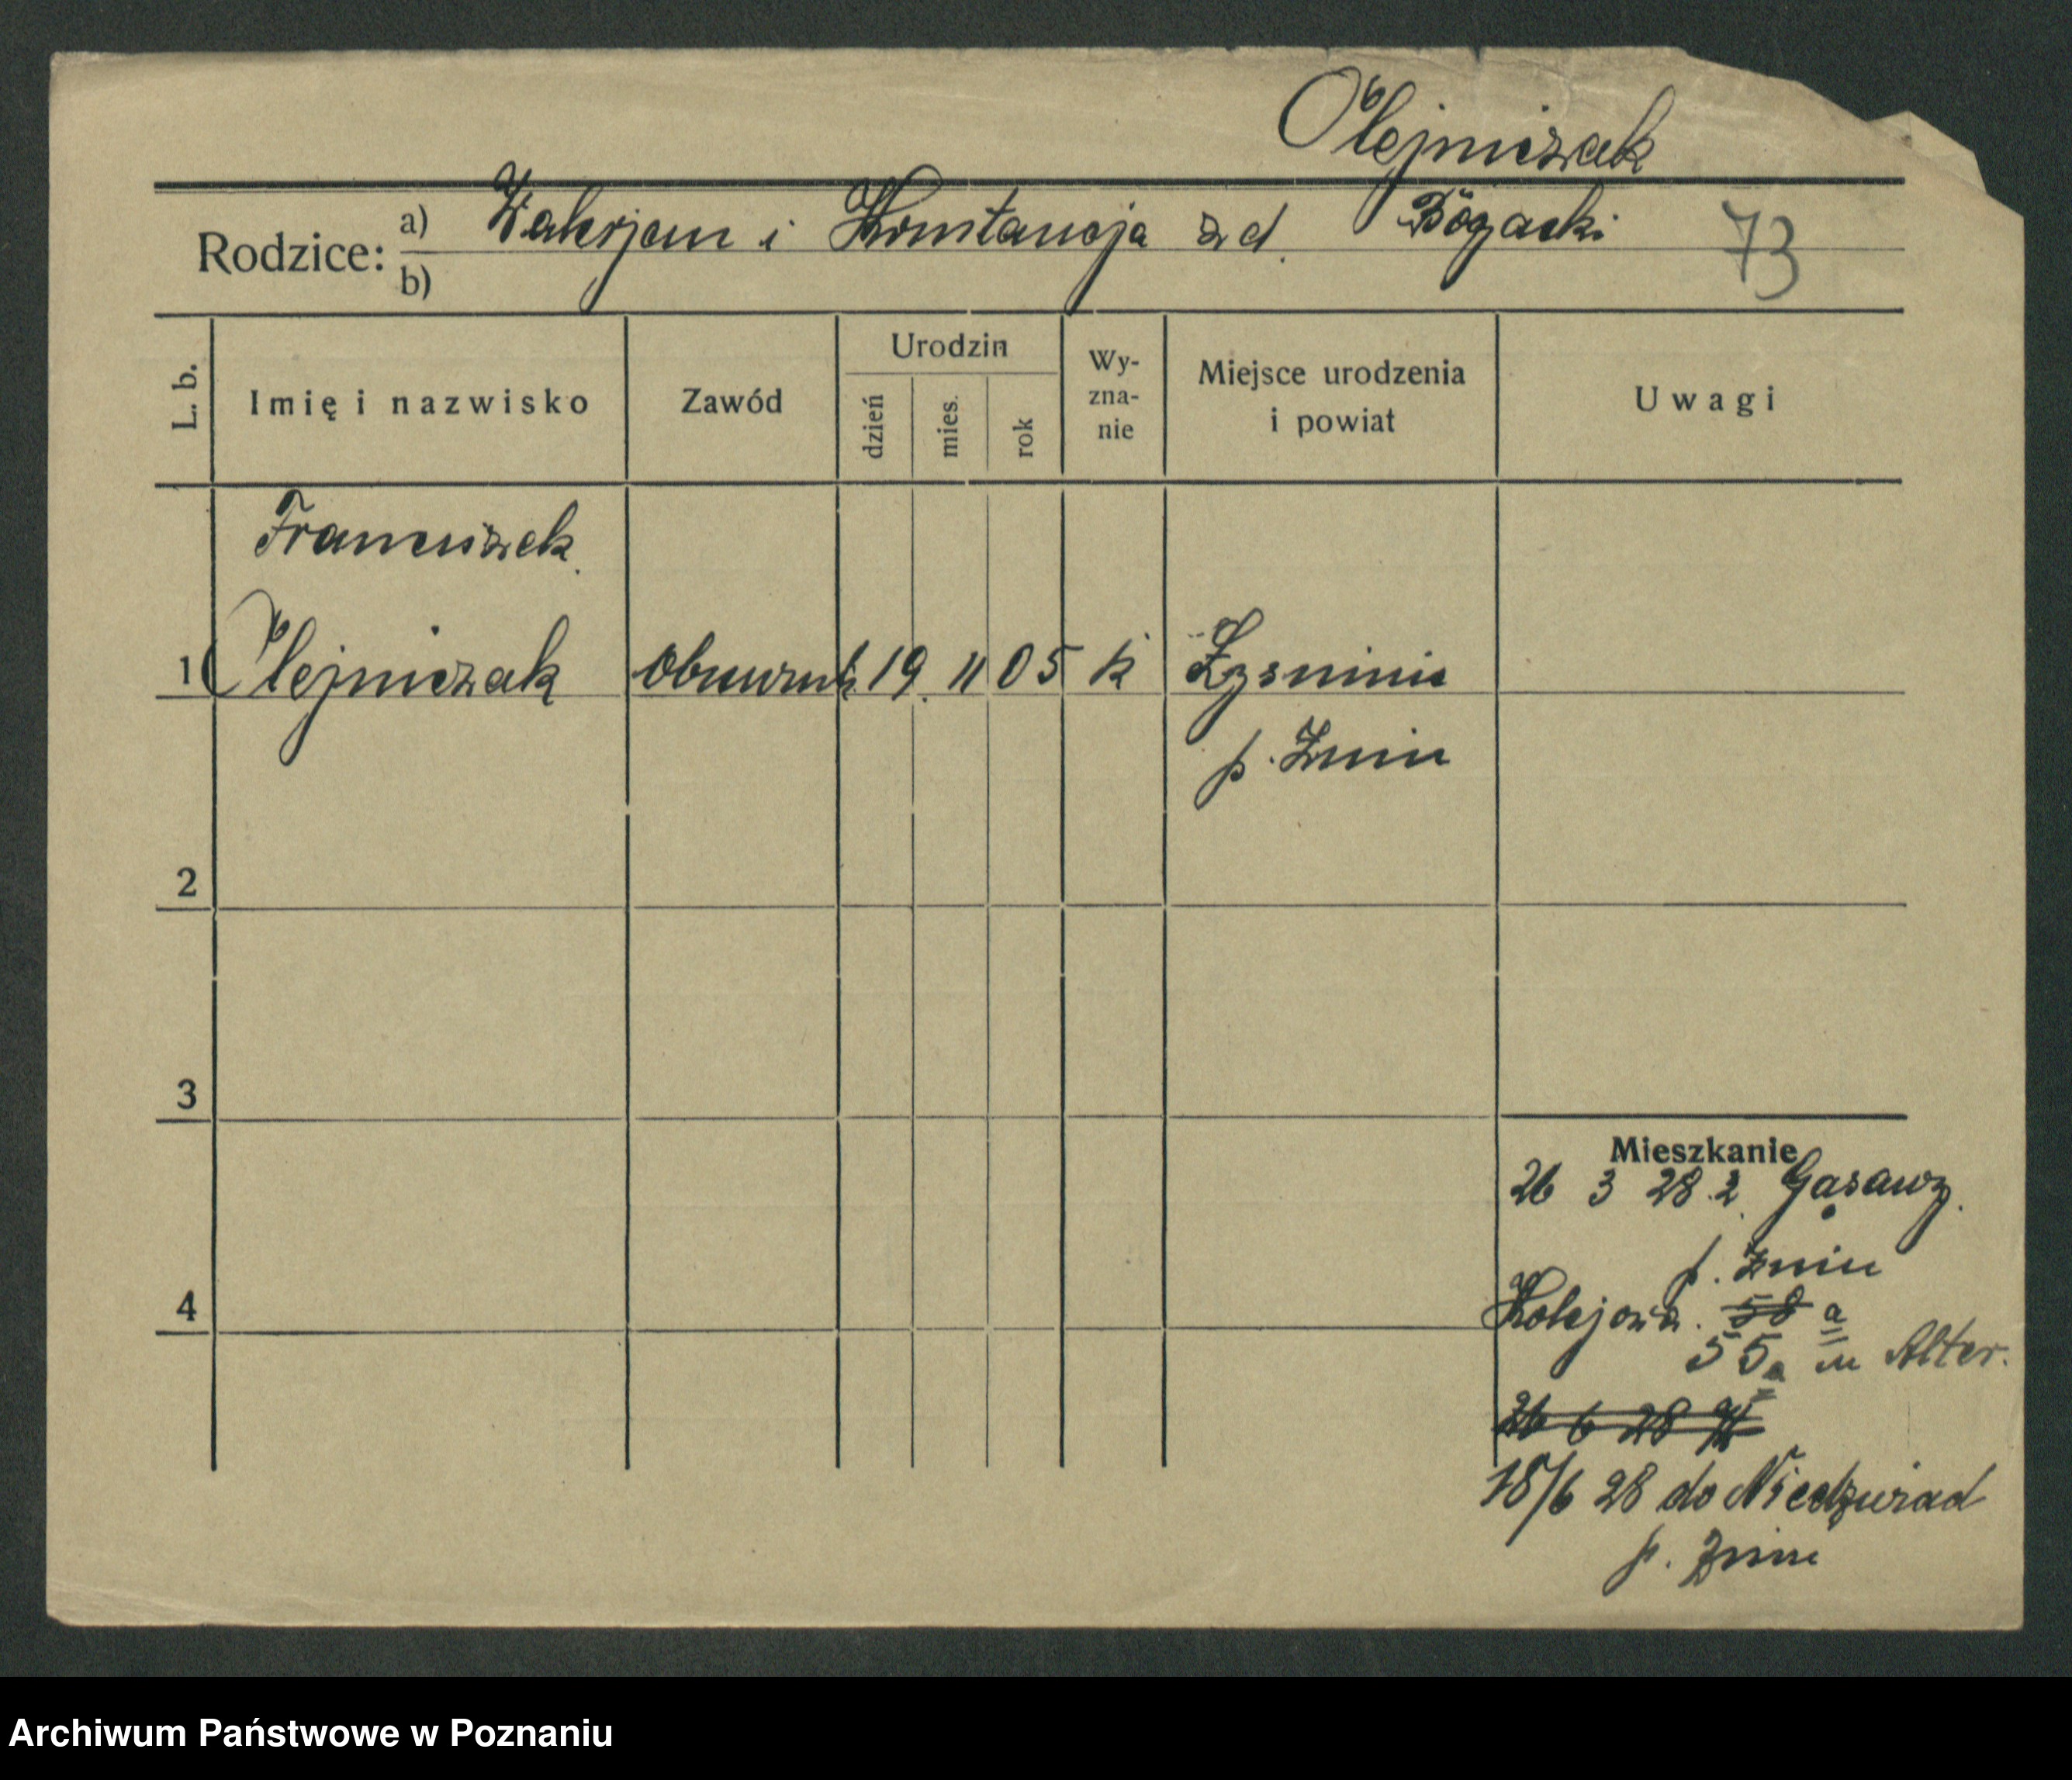 Olejniczak
Rodzice: a) Walerjan i Konstancja z d. Bögacki
b)
73
L. b.
Imię i nazwisko
Zawód
Urodzin
dzień
mies.
rok
Wy-
zna-
nie
Miejsce urodzenia
i powiat
Uwagi
Franciszek
1 Olejniczak 19. 11 05 k
p. Żnin
2
3
4
Mieszkanie
26 3 28 z Gąsawy.
p. Żnin
Kolejowa. 58 a
55a
26 6 28
18/6 28 do Niedźwiad
p. Żnin
Archiwum Państwowe w Poznaniu